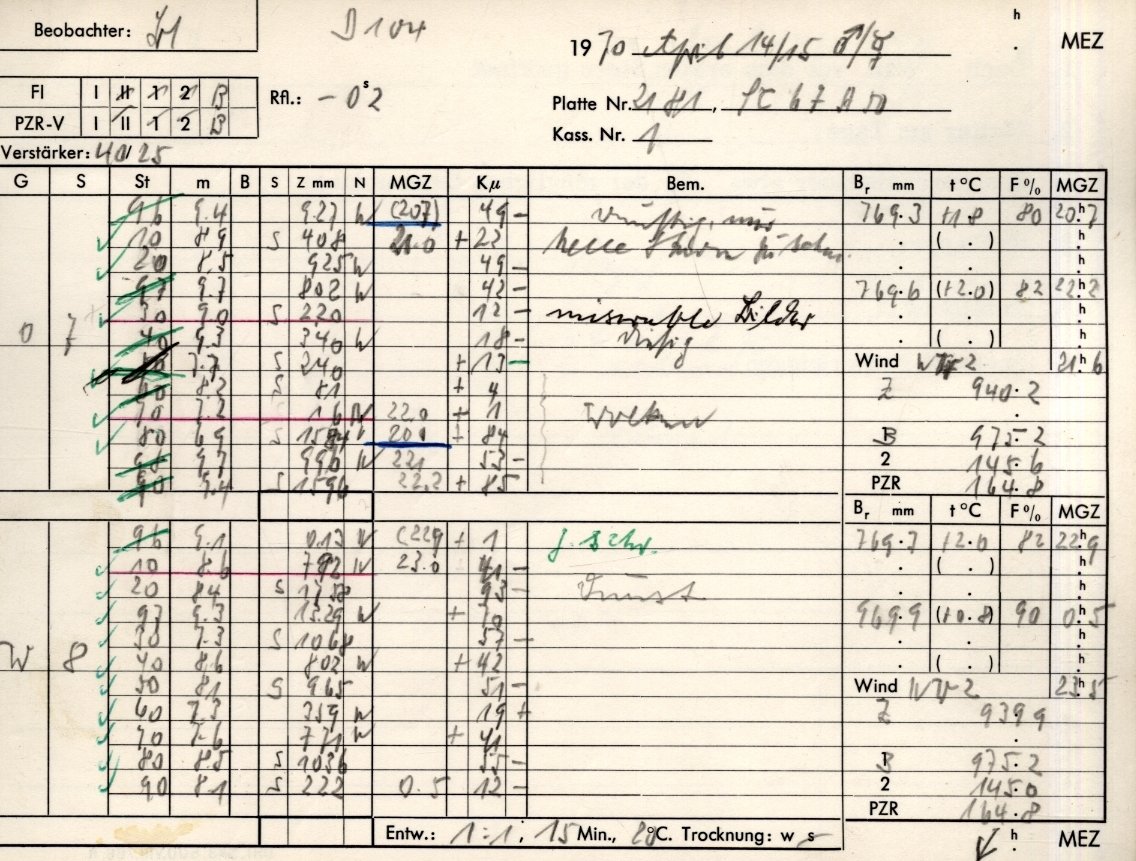 Beobachter:
D 104
1970 April 14/15 ♂/☿
h
MEZ
FI I II 1 2 B
PZR-V I II 1 2 B
Rfl.: - 0ˢ2
Platte Nr. 2181,
Kass. Nr. 1
Verstärker: 40/25
G S St m B S Z mm N MGZ Kμ Bem. Br mm t °C F % MGZ
96 9.4 927 W (207) 49 - dunstig, nur 769.3 +1.8 80 20h7
10 8.9 S 408 21.0 + 22 helle
20 8.5 925 W 49 -
97 9.7 802 W 42 - 769.6 (+2.0) 82 22h2
30 9.0 S 220 12 - miserable Bilder
0 7 40 9.3 340 W 18 - dunstig
7.7 S 240 + 13 - Wind W 2 21h6
60 8.2 S 81 + 4 Z 940.2
70 7.2 16 W 220 + 1 Wolken
80 6.9 S 1584 + 84 B 975.2
98 9.7 996 W 221 53 - 2 145.6
90 9.4 S 1596 22.2 + 85 PZR 164.8
Br mm t °C F % MGZ
96 9.1 013 W (229 + 1 769.7 +2.0 82 22h9
10 8.6 792 W 23.0 41 -
20 8.4 S 93 - Dunst
97 9.3 1329 W + 70 969.9 (+0.8) 90 0h5
30 7.3 S 1068 57 -
W 8 40 8.6 802 W + 42
50 8.1 S 965 51 - Wind W 2 23h5
60 7.3 359 W 19 + Z 9399
70 7.6 771 W + 41
80 8.5 S 1036 55 - B 975.2
90 8.1 S 222 0.5 12 - 2 145.0
PZR 164.8
Entw.: 1:1, 15 Min., 20°C. Trocknung: w s h MEZ